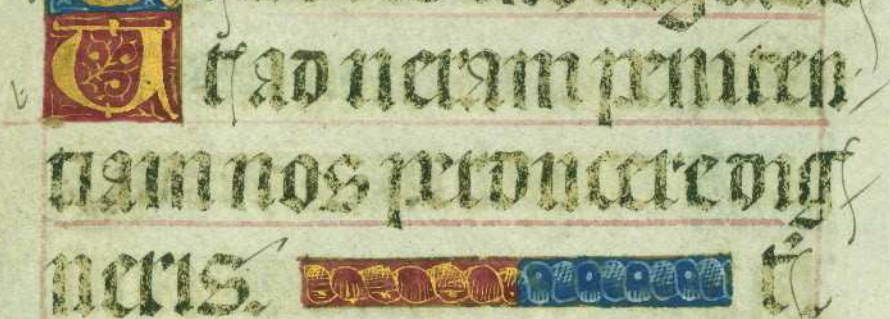 Ut ad veram peniten
tiam nos perducere dig
neris. t.